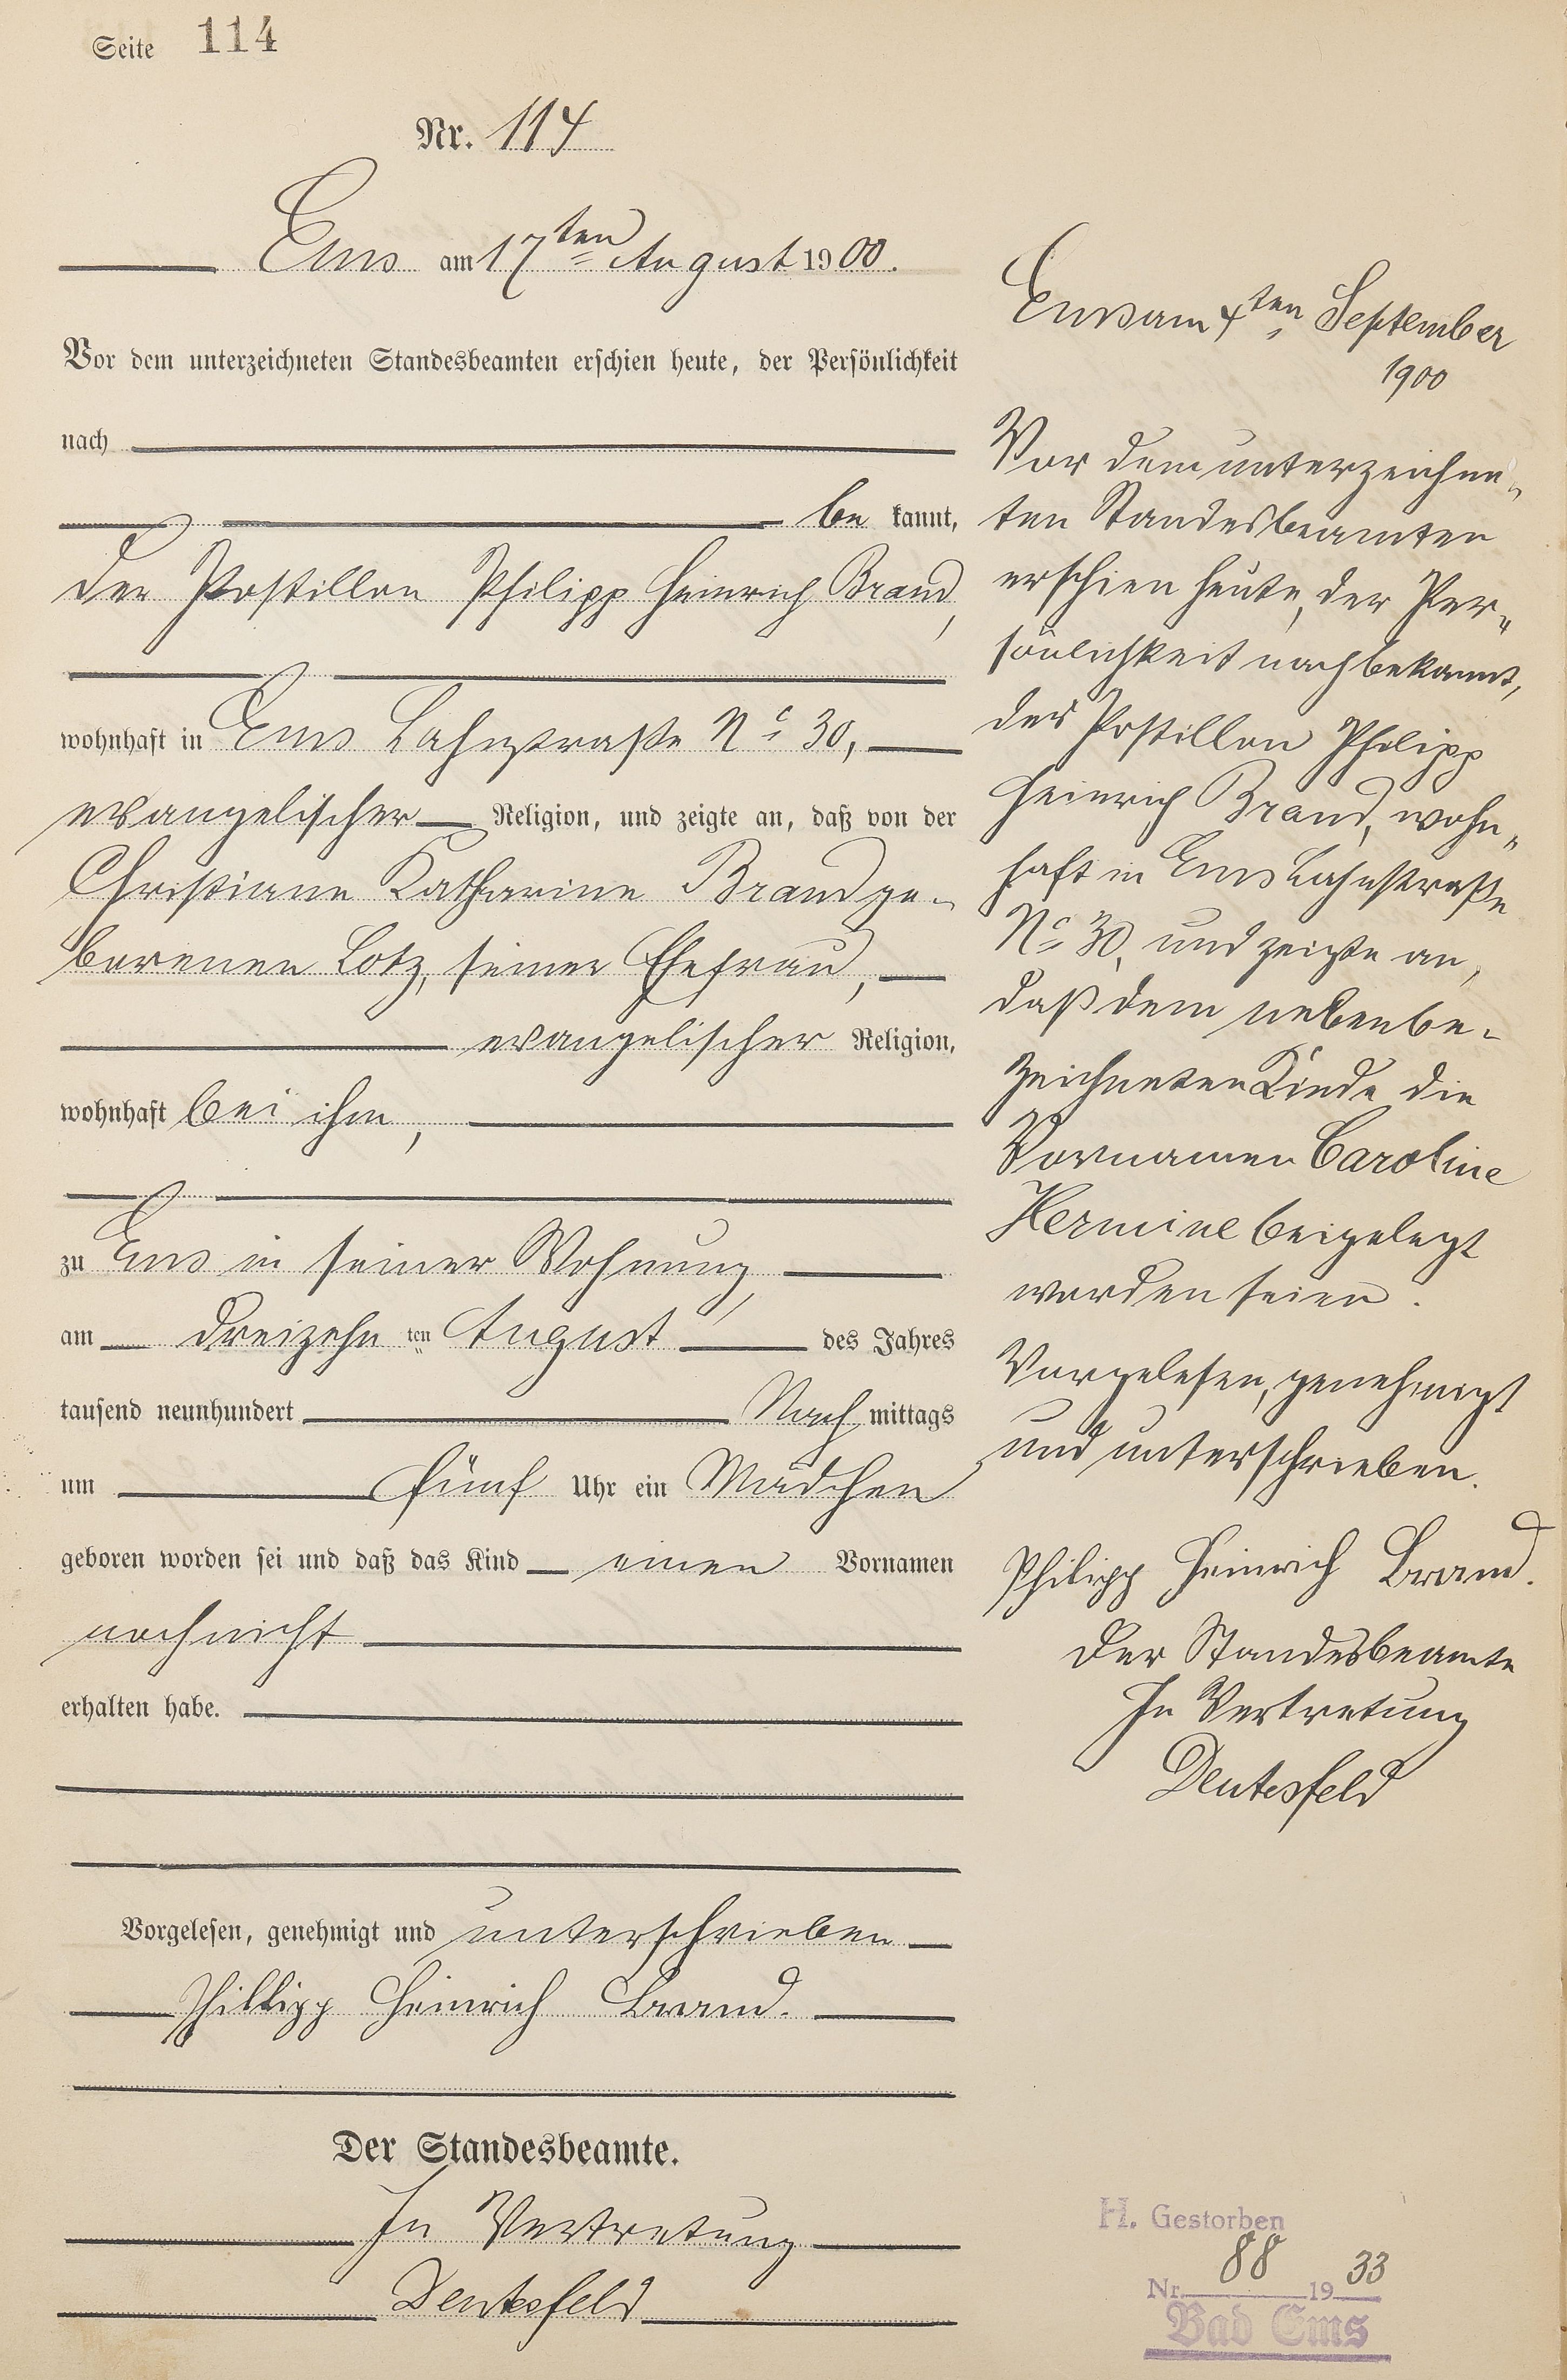 Seite 114
Nr. 114
Ems am 17ten August 1900.
Vor dem unterzeichneten Standesbeamten erschien heute, der Persönlichkeit
nach
be kannt,
der Postillon Philipp Heinrich Brand,
wohnhaft in Ems Lahnstraße No 30,
evangelischer Religion, und zeigte an, daß von der
Christiane Katharine Brand ge-
borenen Lotz, seiner Ehefrau,
evangelischer Religion,
wohnhaft bei ihm,
zu Ems in seiner Wohnung,
am dreizehn ten August des Jahres
tausend neunhundert Nach mittags
um fünf Uhr ein Mädchen
geboren worden sei und daß das Kind einen Vornamen
noch nicht
erhalten habe.
Vorgelesen, genehmigt und unterschrieben
Phillipp Heinrich Brand.
Der Standesbeamte.
In Vertretung
Deutesfeld
Ems am 4ten September
1900
Vor dem unterzeichne-
ten Standesbeamten
erschien heute, der Per-
sönlichkeit nach bekannt,
der Postillon Philipp
Heinrich Brand, wohn-
haft in Ems Lahnstraße
No 30, und zeigte an,
daß dem nebenbe-
zeichneten Kinde die
Vornamen Caroline
Hermine beigelegt
worden seien.
Vorgelesen, genehmigt
und unterschrieben.
Philipp Heinrich Brand.
Der Standesbeamte
In Vertretung
Deutesfeld
H. Gestorben
Nr. 88 1933
Bad Ems